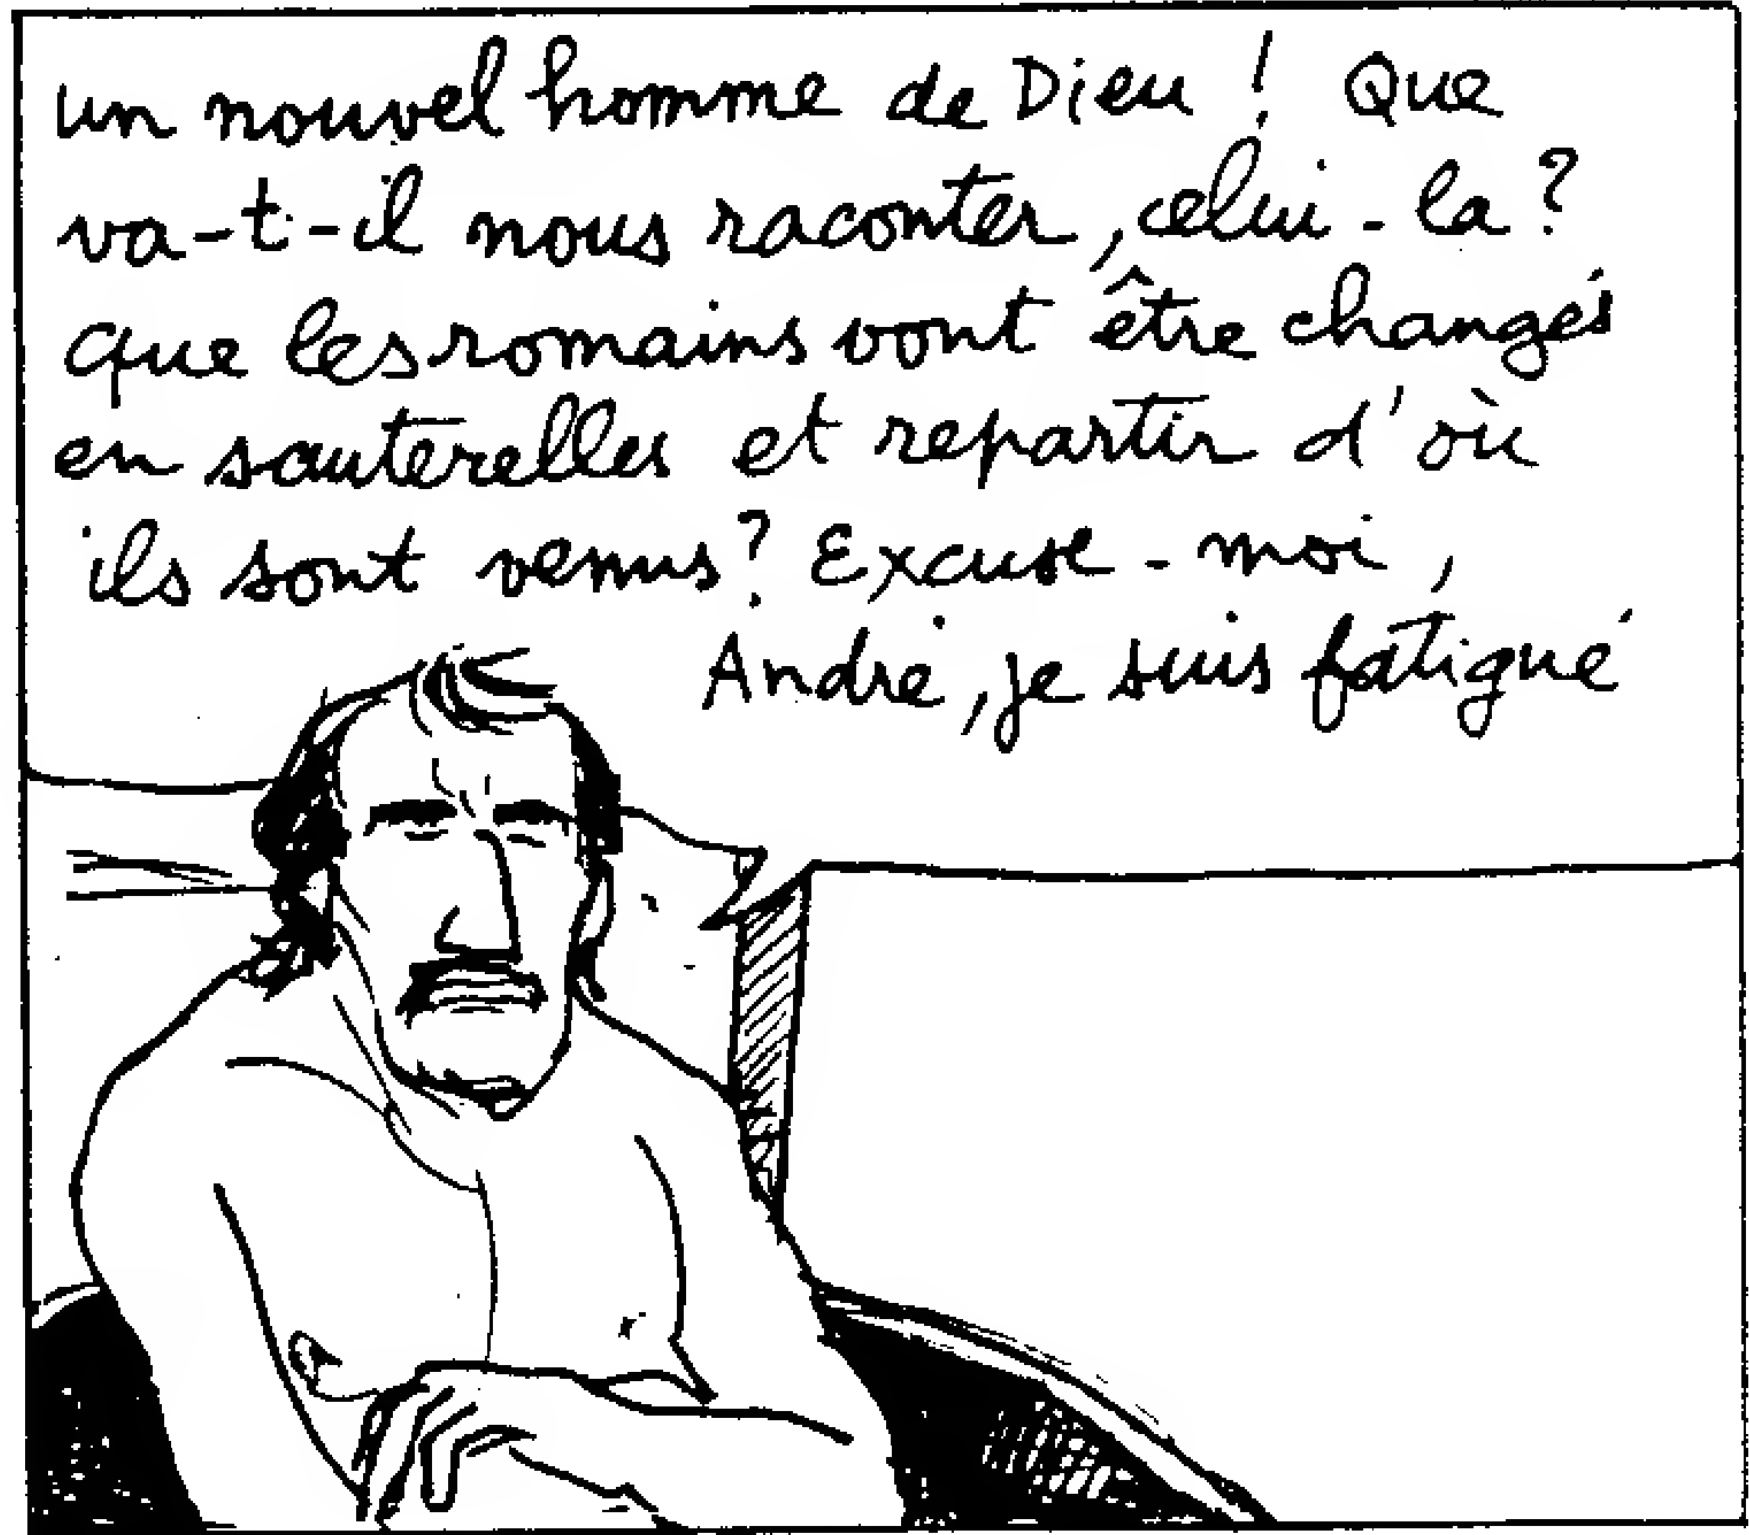 un nouvel homme de Dieu ! Que
va-t-il nous raconter, celui-la ?
que les romains vont être changés
en sauterelles et repartir d'où
ils sont venus ? Excuse-moi,
André, je suis fatigué